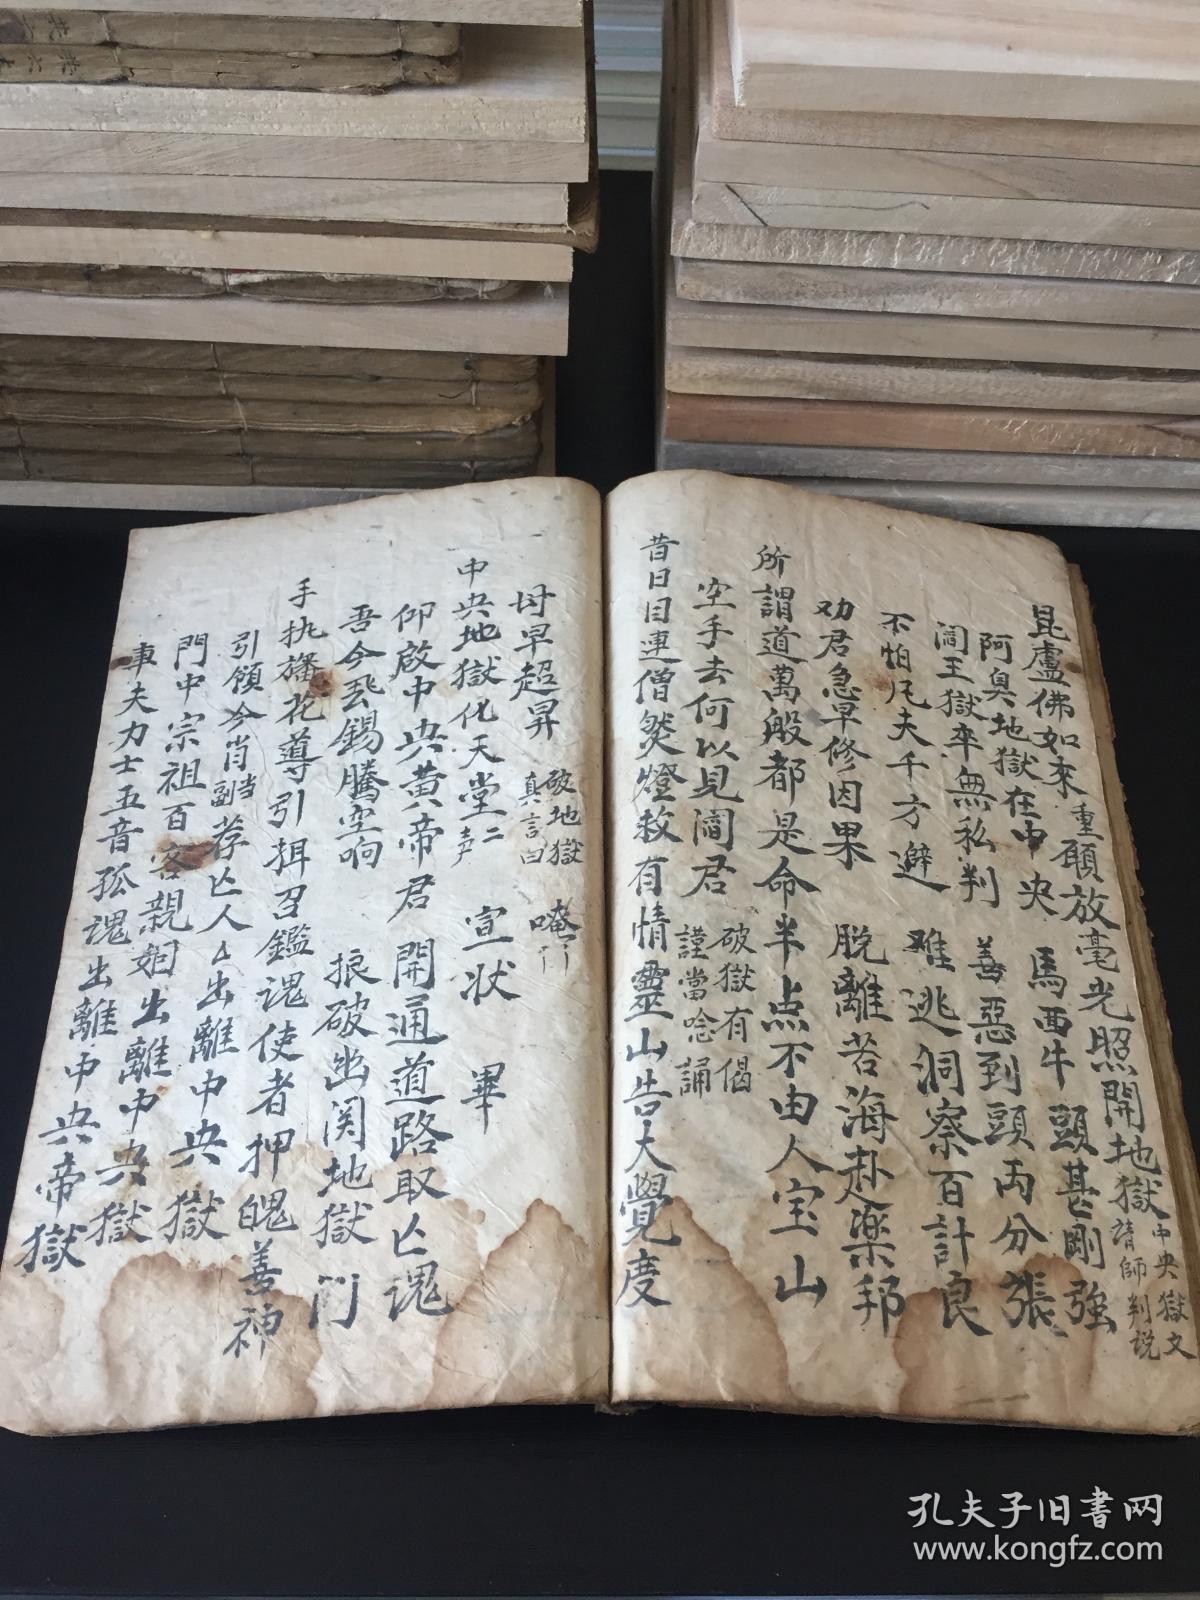 昆盧佛如來 重願放毫光照開地獄 中央獄文 請師判说
阿臭地獄在中央 馬面牛頭甚剛強
閻王獄卒無私判 善惡到頭两分張
不怕凡夫千方避 难逃洞察百計良
劝君急早修因果 脱離苦海赴楽邦
所謂道萬般都是命半点不由人宝山
空手去何以見閻君 破獄有偈 謹當唸誦
昔日目連僧燃燈救有情靈山告大覺度
母早超昇 破地獄 真言曰 唵
中央地獄化天堂二声 宣状 畢
仰啟中央黄帝君 開通道路取亡魂
吾今丟錫騰空响 振破幽関地獄門
手执旛花導引拜召鑑魂使者押魄善神
引領今肖当副荐亡人厶出離中央獄
門中宗祖百客親姻出離中央獄
車夫力士五音孤魂出離中央帝獄
孔夫子旧书网
www.kongfz.com